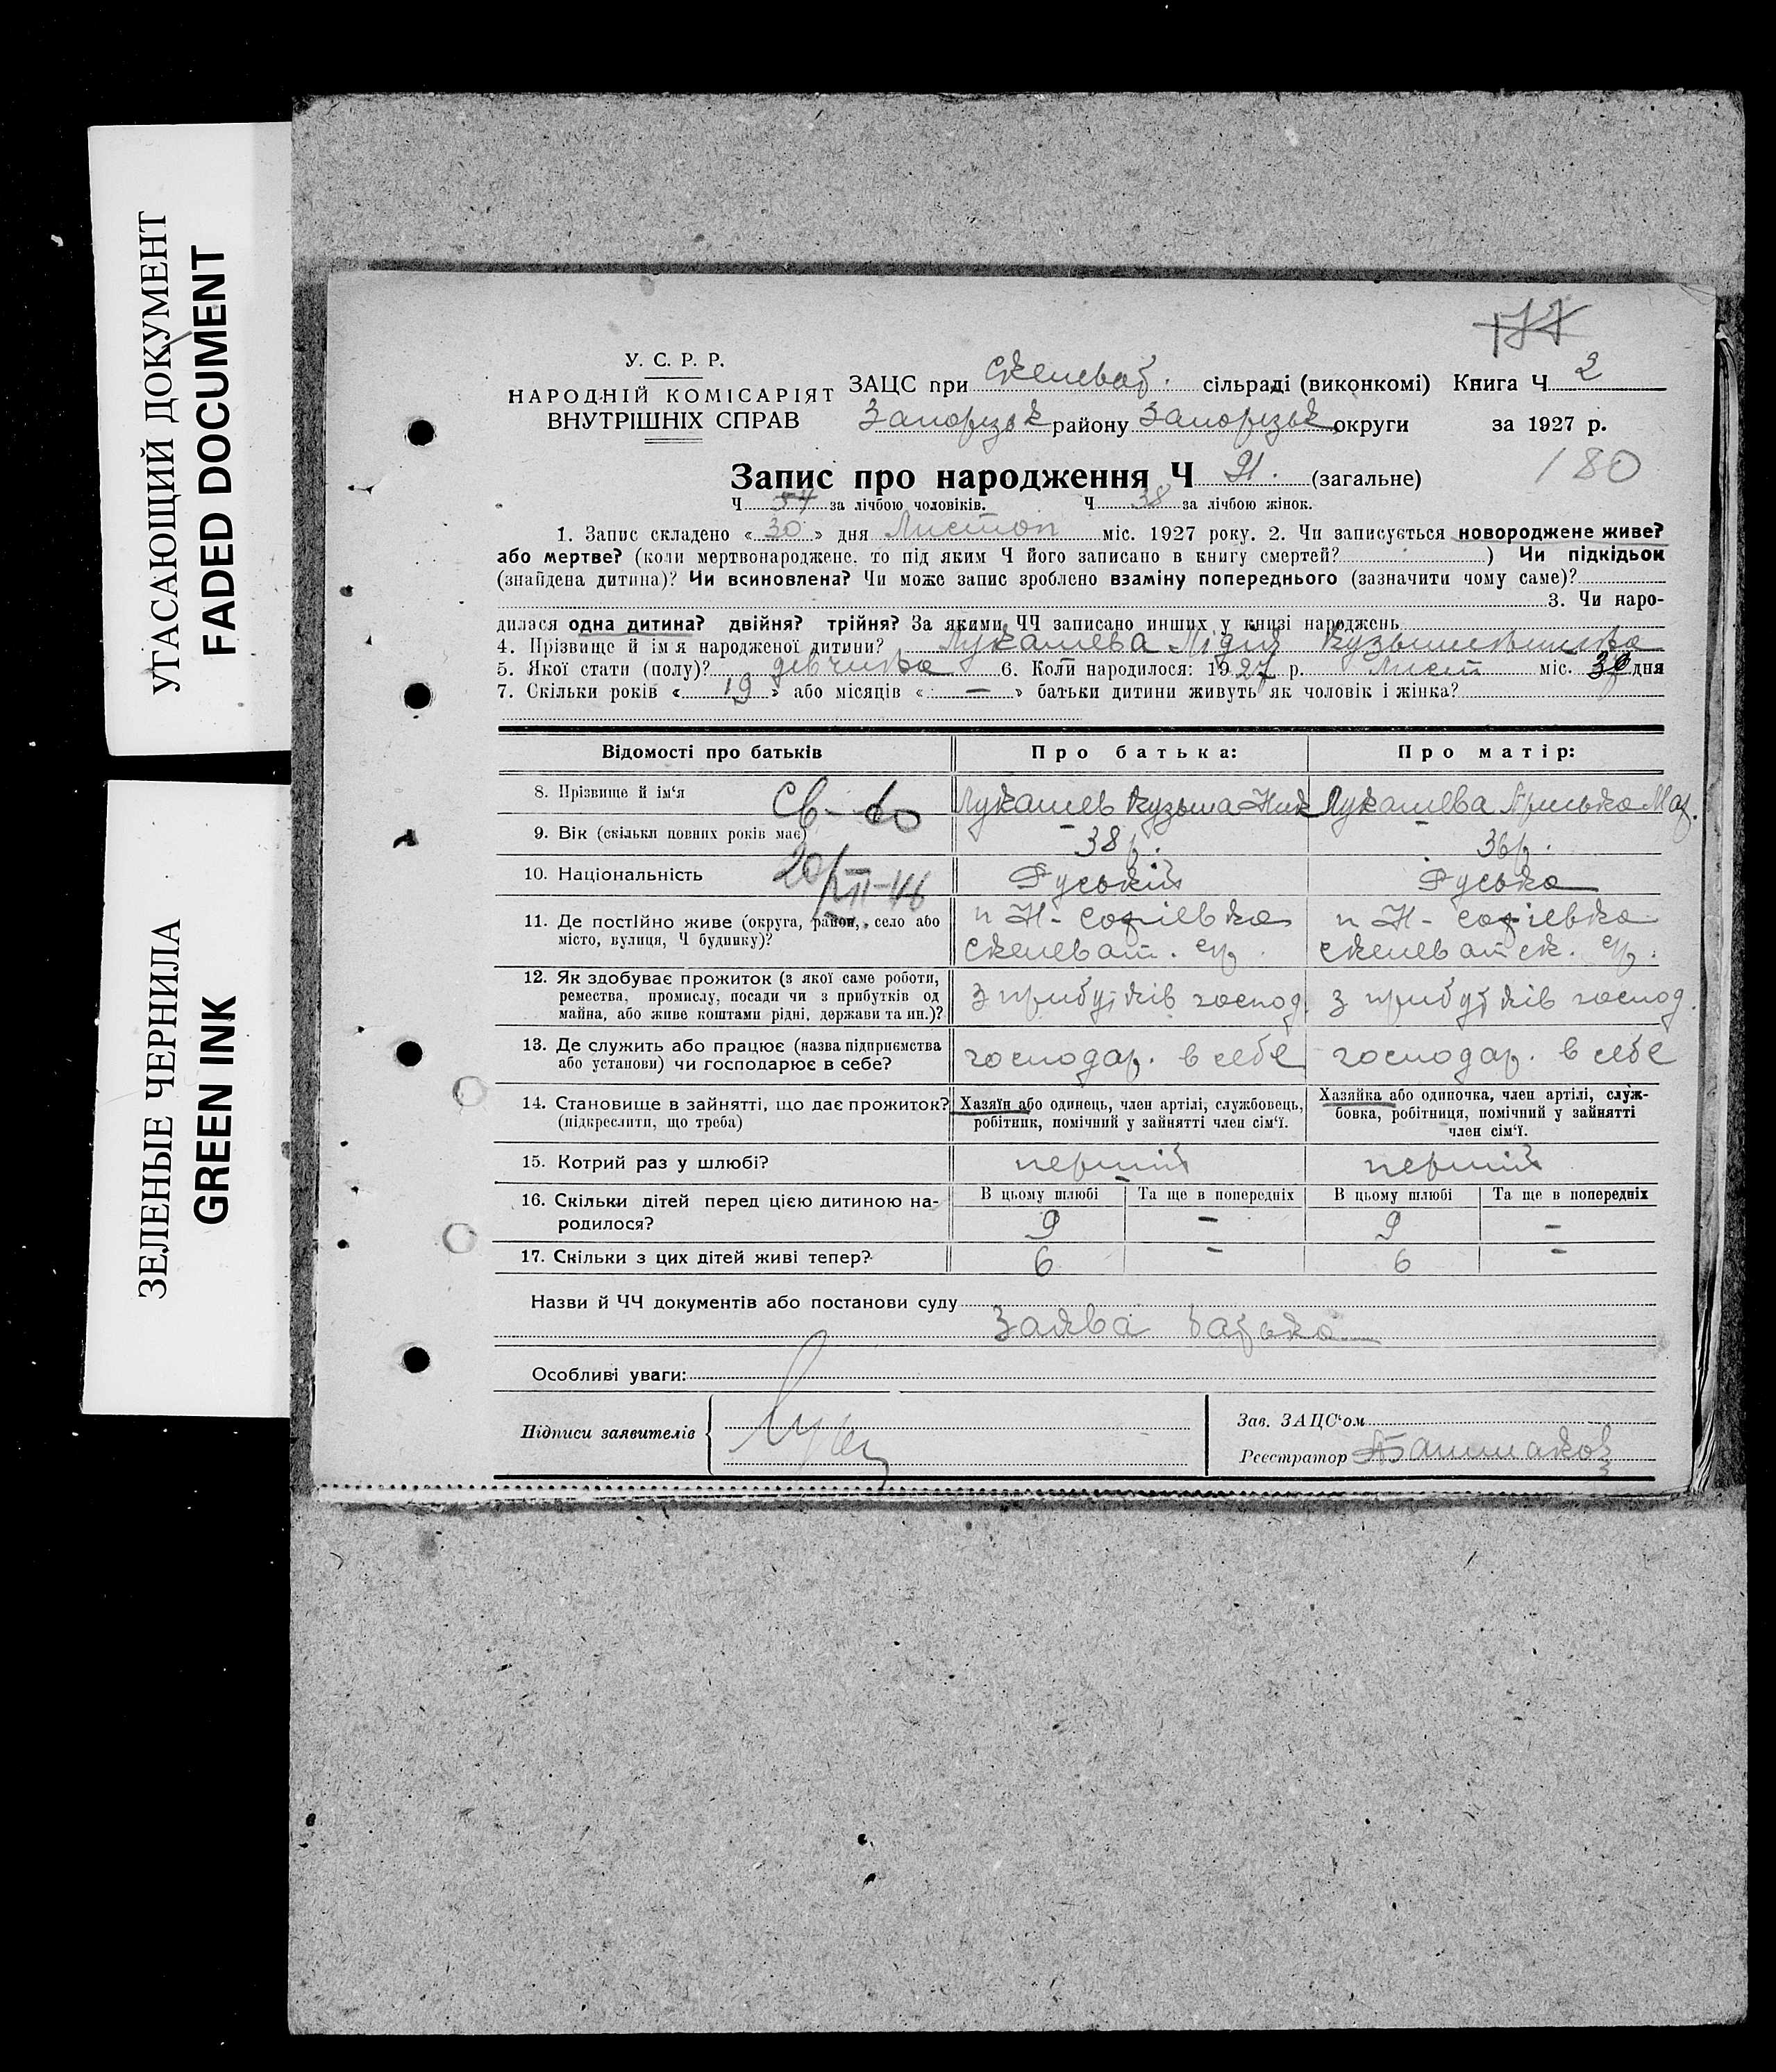 УГАСАЮЩИЙ ДОКУМЕНТ
FADED DOCUMENT
ЗЕЛЕНЫЕ ЧЕРНИЛА
GREEN INK
У. С. Р. Р.
НАРОДНІЙ КОМІСАРІЯТ
ВНУТРІШНІХ СПРАВ
177
ЗАЦС при Скелеват. сільраді (виконкомі) Книга Ч 2
Запорізьк району Запорізьк округи за 1927 р.
Запис про народження Ч 91. (загальне) 180
Ч 54 за лічбою чоловіків. Ч 38 за лічбою жінок.
1. Запис складено « 30 » дня Листоп міс. 1927 року. 2. Чи записується новороджене живе?
або мертве? (коли мертвонароджене, то під яким Ч його записано в книгу смертей? ) Чи підкідьок
(знайдена дитина)? Чи всиновлена? Чи може запис зроблено взаміну попереднього (зазначити чому саме)?
3. Чи наро-
дилася одна дитина? двійня? трійня? За якими ЧЧ записано инших у книзі народжень
4. Прізвище й ім'я народженої дитини? Лукашева Лідия Кузьминишна
5. Якої стати (полу)? девчинка 6. Коли народилося: 1927 р. Лист міс. 30 дня
7. Скільки років « 19 » або місяців « — » батьки дитини живуть як чоловік і жінка?
Відомості про батьків Про батька: Про матір:
8. Прізвище й ім'я Св-во Лукашев Кузьма Ник Лукашева Ариська Мат.
9. Вік (скільки повних років має) 38 р. 36 р.
10. Національність 20/XII-46 Руський Руська
11. Де постійно живе (округа, район, село або п Н- Софіевка п Н- Софіевка
місто, вулиця, Ч будинку)? Скелеват. ср. Скелеватск. ср.
12. Як здобуває прожиток (з якої саме роботи,
ремества, промислу, посади чи з прибутків од з прибутків господ. з прибутків господ.
майна, або живе коштами рідні, держави та ин.)?
13. Де служить або працює (назва підприємства господар. в себе господар. в себе
або установи) чи господарює в себе?
14. Становище в зайнятті, що дає прожиток? Хазяїн або одинець, член артілі, службовець, Хазяйка або одиночка, член артілі, служ-
(підкреслити, що треба) робітник, помічний у зайнятті член сім'ї. бовка, робітниця, помічний у зайнятті
член сім'ї.
15. Котрий раз у шлюбі? перший перший
16. Скільки дітей перед цією дитиною на- В цьому шлюбі Та ще в попередніх В цьому шлюбі Та ще в попередніх
родилося? 9 — 9 —
17. Скільки з цих дітей живі тепер? 6 — 6 —
Назви й ЧЧ документів або постанови суду
Заява батька
Особливі уваги:
Підписи заявителів
Зав. ЗАЦС'ом
Реєстратор Башмаков